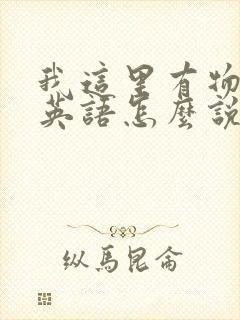 我這里有物
英語怎麼說
纵馬昆侖